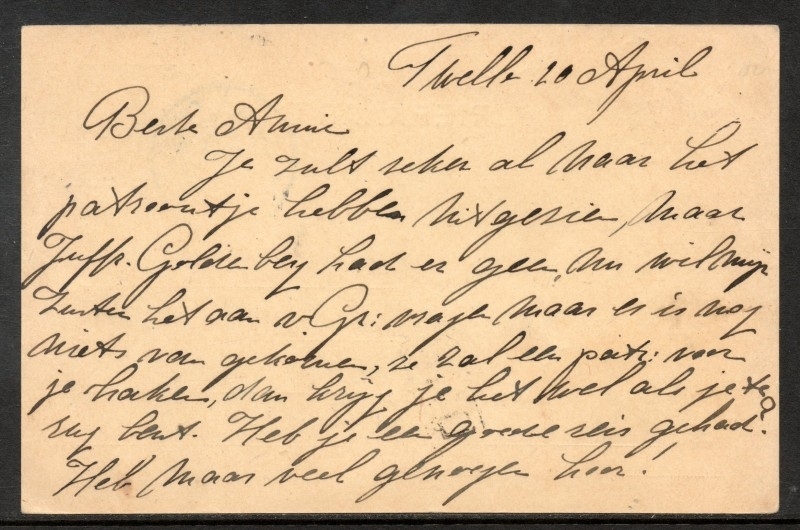 Twello 20 April
Beste Annie
Je zult zeker al naar het
patroontje hebben uitgezien, maar
Juffr. Goldenberg had er geen, nu wil mijn
zuster het aan v. Gr: vragen maar er is nog
niets van gekomen, ze zal een patr: voor
je haken, dan krijg je het wel als je te
rug bent. Heb je een goede reis gehad.
Heb maar veel genoegen hoor!